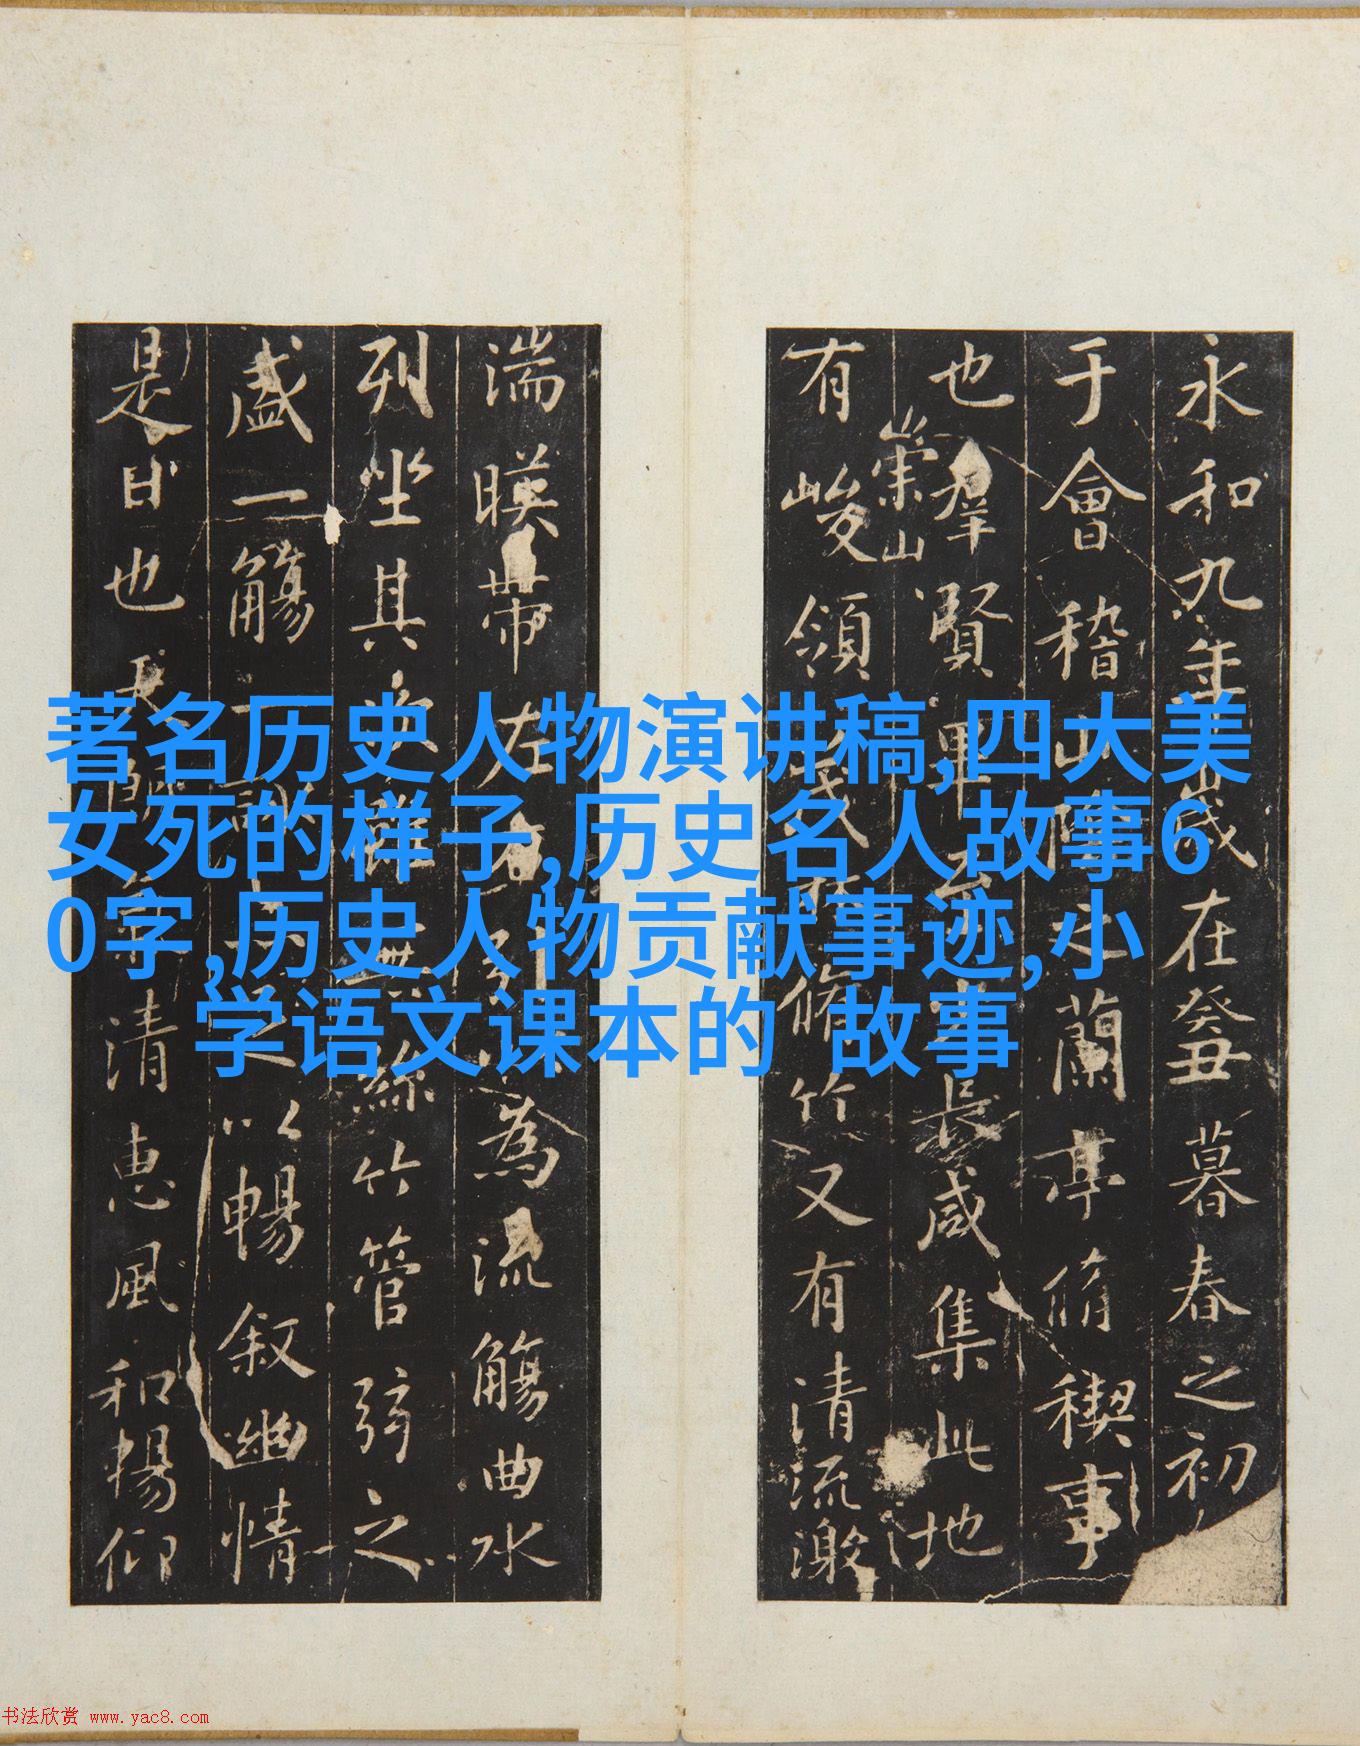 著名历史人物演讲稿,四大美
女死的样子,历史名人故事6
0字,历史人物贡献事迹,小
学语文课本的 故事
永和九年歲在癸丑暮春之初
于會稽山陰之蘭亭脩禊事
也羣賢畢長咸集此地
有崇山峻領茂脩竹又有清流激
湍暎帶左右引為流觴曲水
列坐其次無絲竹管弦之
盛一觴一詠以暢叙幽情
是日也天朗清惠風和暢仰
书法欣赏 www.yac8.com